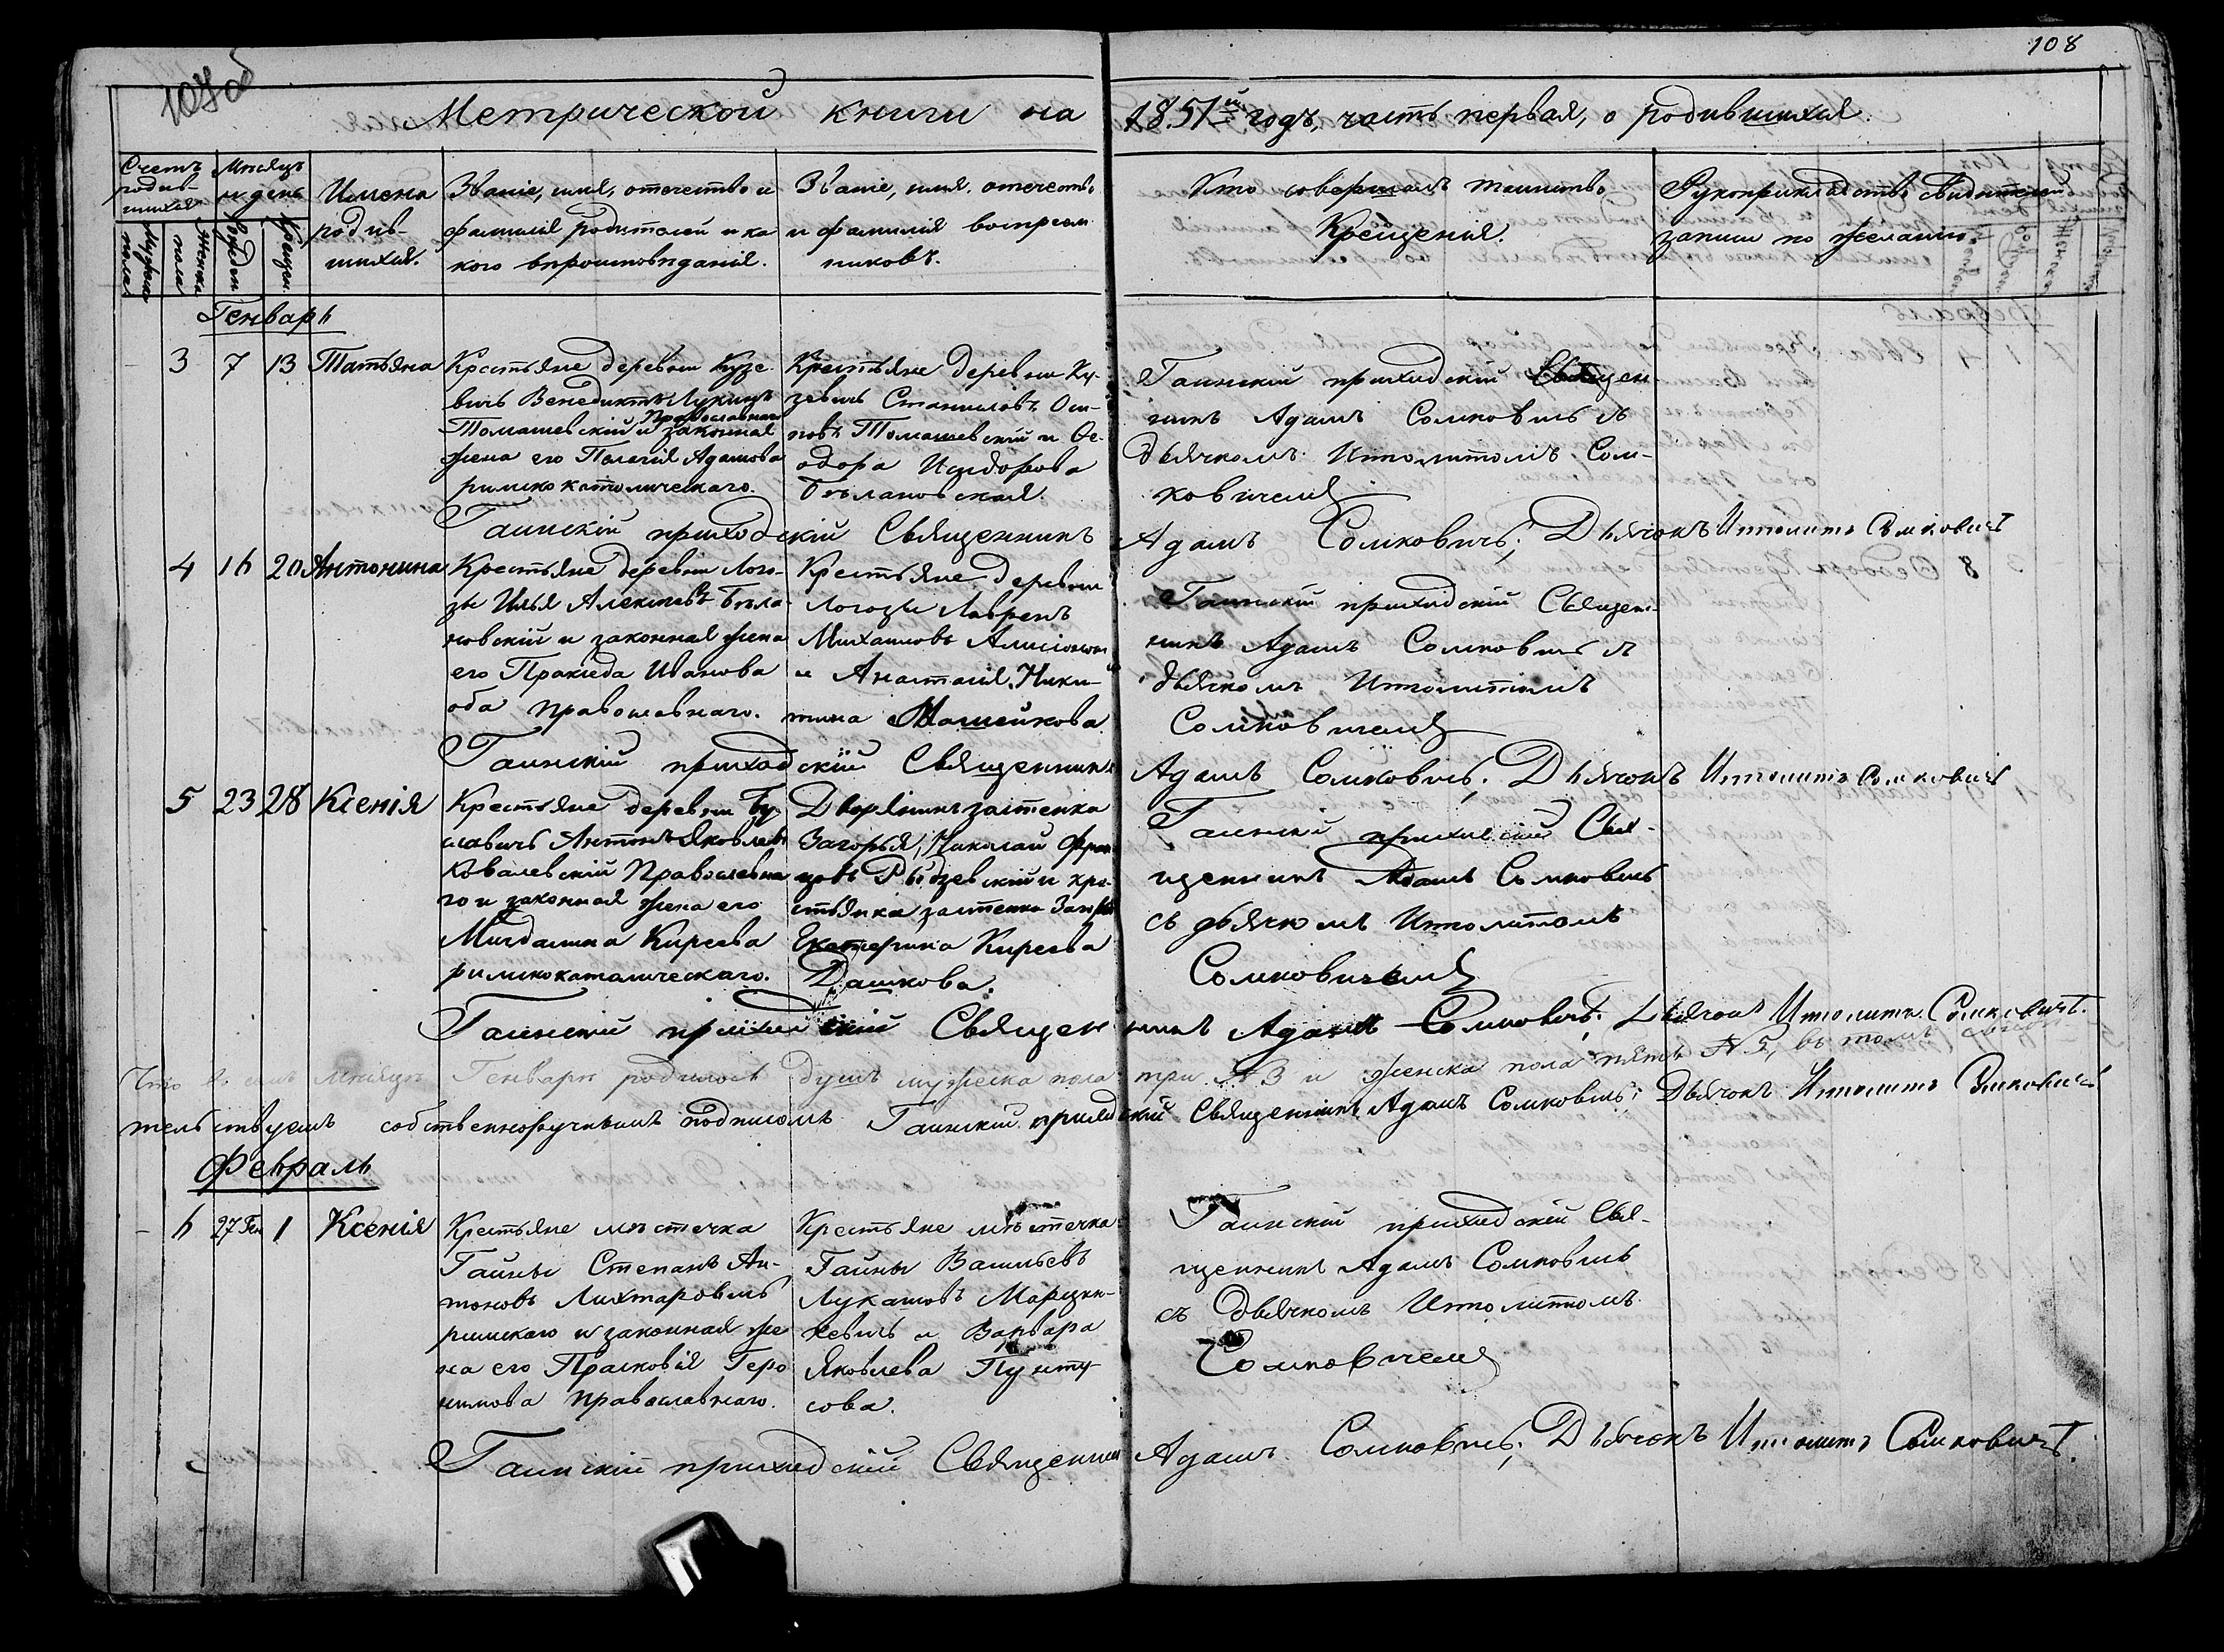 107об
108
Метрической книги на 1851й годъ, часть первая, о родившихся.
Счетъ родив-шихся
Мѣсяцъ и день
Мужска пола
Женска пола
Рожден
Крещен.
Имена
родив-
шихся.
Званіе, имя, отечество и
фамилія родителей и ка
кого вѣроисповѣданія.
Званіе, имя, отечество
и фамилія воспріем
никовъ.
Кто совершалъ таинство
Крещенія.
Рукоприкладство свидетелей
записи по желанію.
Генварь
3 7 13 Татьяна
Крестьяне деревни Кузе-
вичь Венедиктъ Лукинъ
Православнаго
Томашевскій и законная
жена его Пелагія Адамова
римско католическаго.
Крестьяне деревни Ку-
зевичь Станиславъ Оси-
повъ Томашевскій и Ѳе-
одора Исидорова
Бѣлановская.
Гаинскій приходскій Священ-
никъ Адамъ Сомковичь съ
дьячкомъ Ипполитомъ Сом-
ковичемъ
Гаинскій приходскій Священникъ Адамъ Сомковичь; Дьячокъ Ипполитъ Сомковичъ
4 16 20 Антонина
Крестьяне деревни Лого-
зы Илья Алексеевъ Бѣла-
новскій и законная жена
его Праксида Иванова
оба православнаго.
Крестьяне деревни
Логозы Лавренъ
Михаиловъ
и Анастасія Ники-
тина Машейкова.
Гаинскій приходскій Священ-
никъ Адамъ Сомковичь съ
дьячкомъ Ипполитомъ
Сомковичемъ
Гаинскій приходскій Священникъ Адамъ Сомковичь; Дьячокъ Ипполитъ Сомковичъ
5 23 28 Ксенія
Крестьяне деревни Бу
славичь Антонъ Яковлевъ
Ковалевскій Православна
го и законная жена его
Магдалина Киреева
римскокатолическаго.
Дворянинъ застенка
Загорья, Николай Фран
цовъ и кре-
стьянка застенка
Екатерина Киреева
Дашкова.
Гаинскій приходскій Свя-
щенникъ Адамъ Сомковичь
съ дьячкомъ Ипполитомъ
Сомковичемъ
Гаинскій приходскій Священникъ Адамъ Сомковичь; Дьячокъ Ипполитъ Сомковичъ.
Что въ семъ мѣсяцѣ Генварѣ родилось душъ мужеска пола три №3 и женска пола пять №5, въ томъ свидѣ-
тельствуемъ собственноручнымъ подписомъ Гаинскій приходскій Священникъ Адамъ Сомковичь; Дьячокъ Ипполитъ Сомковичъ
Февраль
6 27 Ген 1 Ксенія
Крестьяне мѣстечка
Гайны Степанъ Ан-
тоновъ Лихтаровичь
римскаго и законная же
на его Прасковія Геро
нимова православнаго.
Крестьяне мѣстечка
Гайны Васильевъ
Лукашовъ Марцин-
кевичь и Варвара
Яковлева Пунту-
сова.
Гаинскій приходскій Свя-
щенникъ Адамъ Сомковичь
съ дьячкомъ Ипполитомъ
Сомковичемъ
Гаинскій приходскій Священникъ Адамъ Сомковичь; Дьячокъ Ипполитъ Сомковичъ.